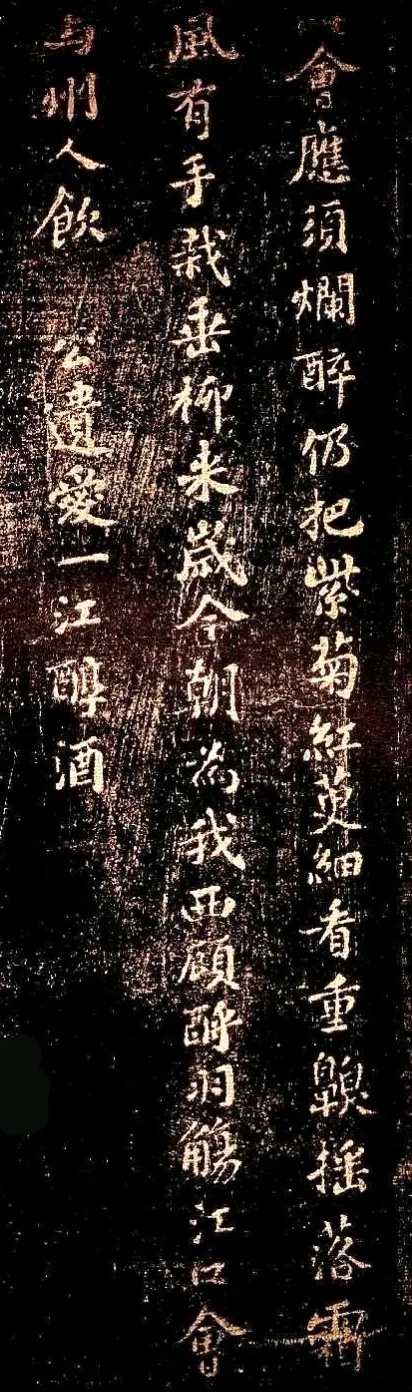 會應須爛醉仍把紫菊紅萸細看重嗅摇落霜
風有手栽垂柳来歲今朝為我西顧酹羽觴江口會
与州人飲公遺愛一江醇酒